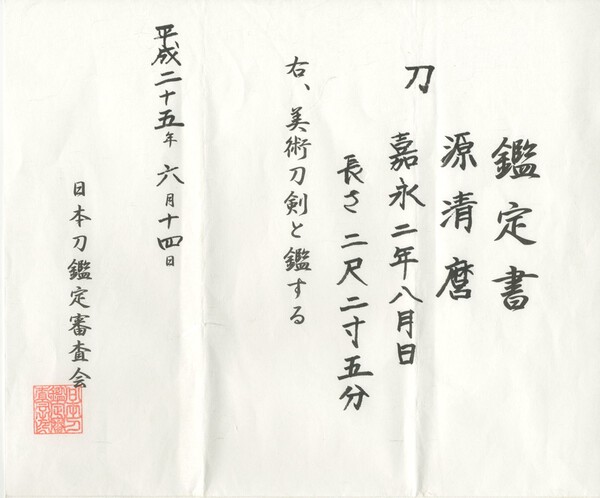 鑑定書
源清麿
刀
嘉永二年八月日
長さ二尺二寸五分
右、美術刀剣と鑑する
平成二十五年六月十四日
日本刀鑑定審査会